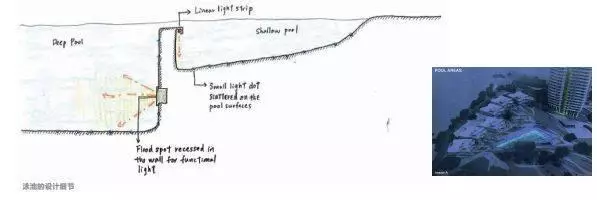 Linear light strip
Deep Pool
Shallow pool
Small light dot
scattered on the
pool surfaces
Flood spot recessed in
the wall for functional
light
POOL AREAS
泳池的设计细节